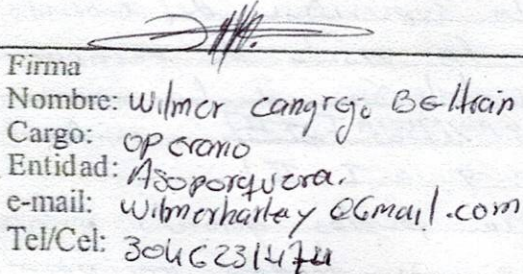 Firma
Nombre: Wilmer cangrejo BELtrán
Cargo: operario
Entidad: Asoporquera.
e-mail: wilmerharley@Gmail.com
Tel/Cel: 3046231474